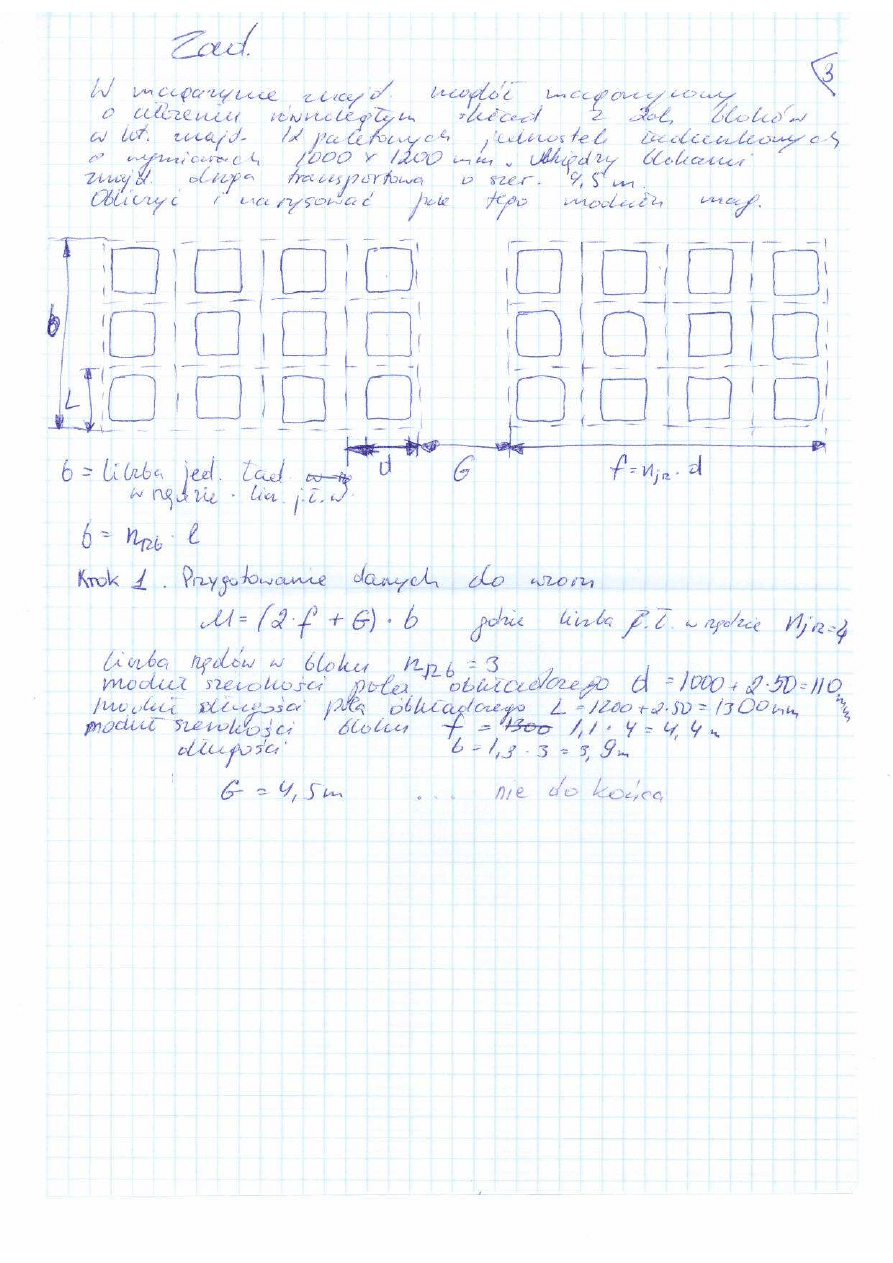 Zad.
3
W magazynie znajd. moduł magazynowy
o ułożeniu równoległym skład z 2óch bloków
w kt. znajd. 12 paletowych jednostek ładunkowych
o wymiarach 1000 x 1200 mm. Między blokami
znajd. droga transportowa o szer. 4,5 m.
Obliczyć i narysować pole tego modułu mag.
b
L
d
G
f = njr · d
b = liczba jed. ład.
w rzędzie · j.ł. w
b = nrzb · l
Krok 1. Przygotowanie danych do wzoru
M = (2·f + G) · b gdzie liczba j.ł. w rzędzie njr = 4
liczba rzędów w bloku nrzb = 3
moduł szerokości pola odkładczego d = 1000 + 2·50 = 110 mm
moduł długości pola odkładczego L = 1200 + 2·50 = 1300 mm
moduł szerokości bloku f = 1300 1,1 · 4 = 4,4 m
długości b = 1,3 · 3 = 3,9 m
G = 4,5 m ... nie do końca